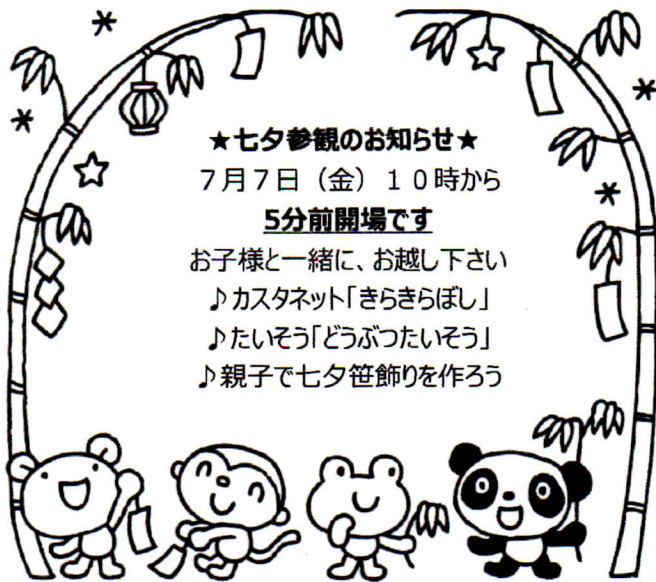 ★七夕参観のお知らせ★
７月７日（金）１０時から
5分前開場です
お子様と一緒に、お越し下さい
♪カスタネット「きらきらぼし」
♪たいそう「どうぶつたいそう」
♪親子で七夕笹飾りを作ろう